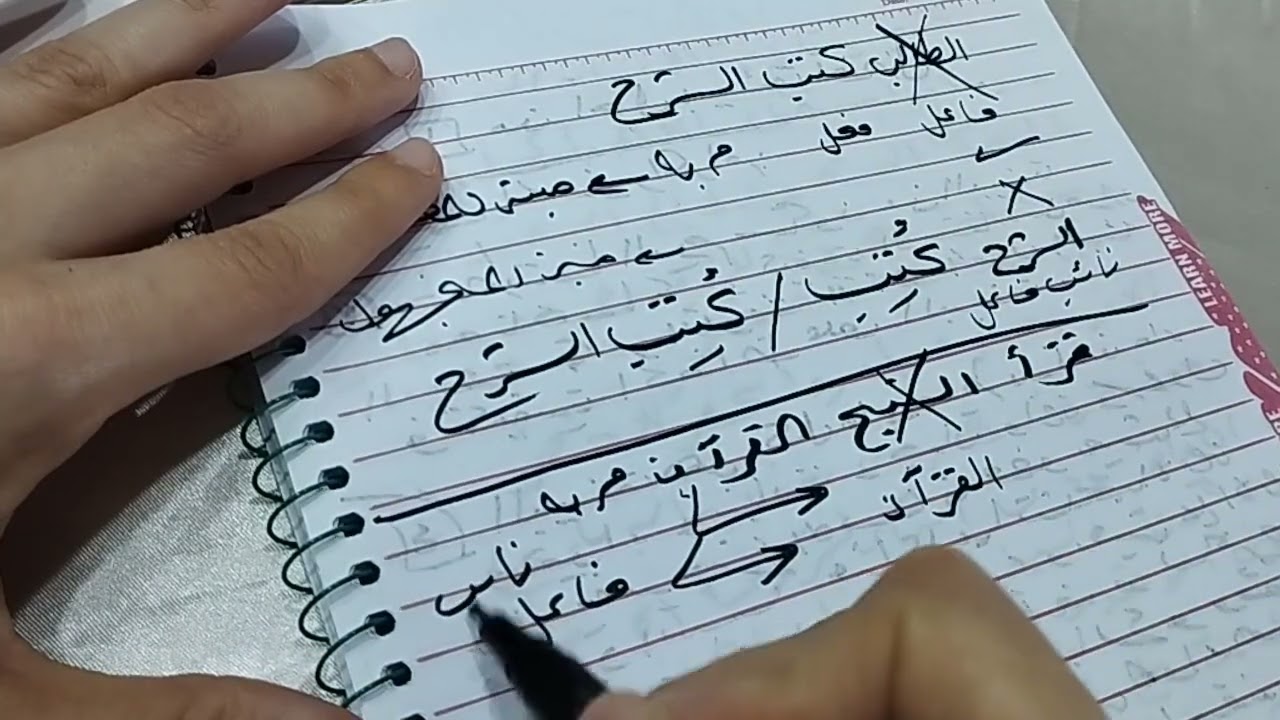 الطالب كتب الشرح
فاعل فعل م به ← مبني للمعلوم
الشرح كُتِب / كُتِب الشرح ← مبني للمجهول
نائب فاعل
قرأ الشيخ القرآن م به
القرآن
فاعل
ناس
LEARN MORE